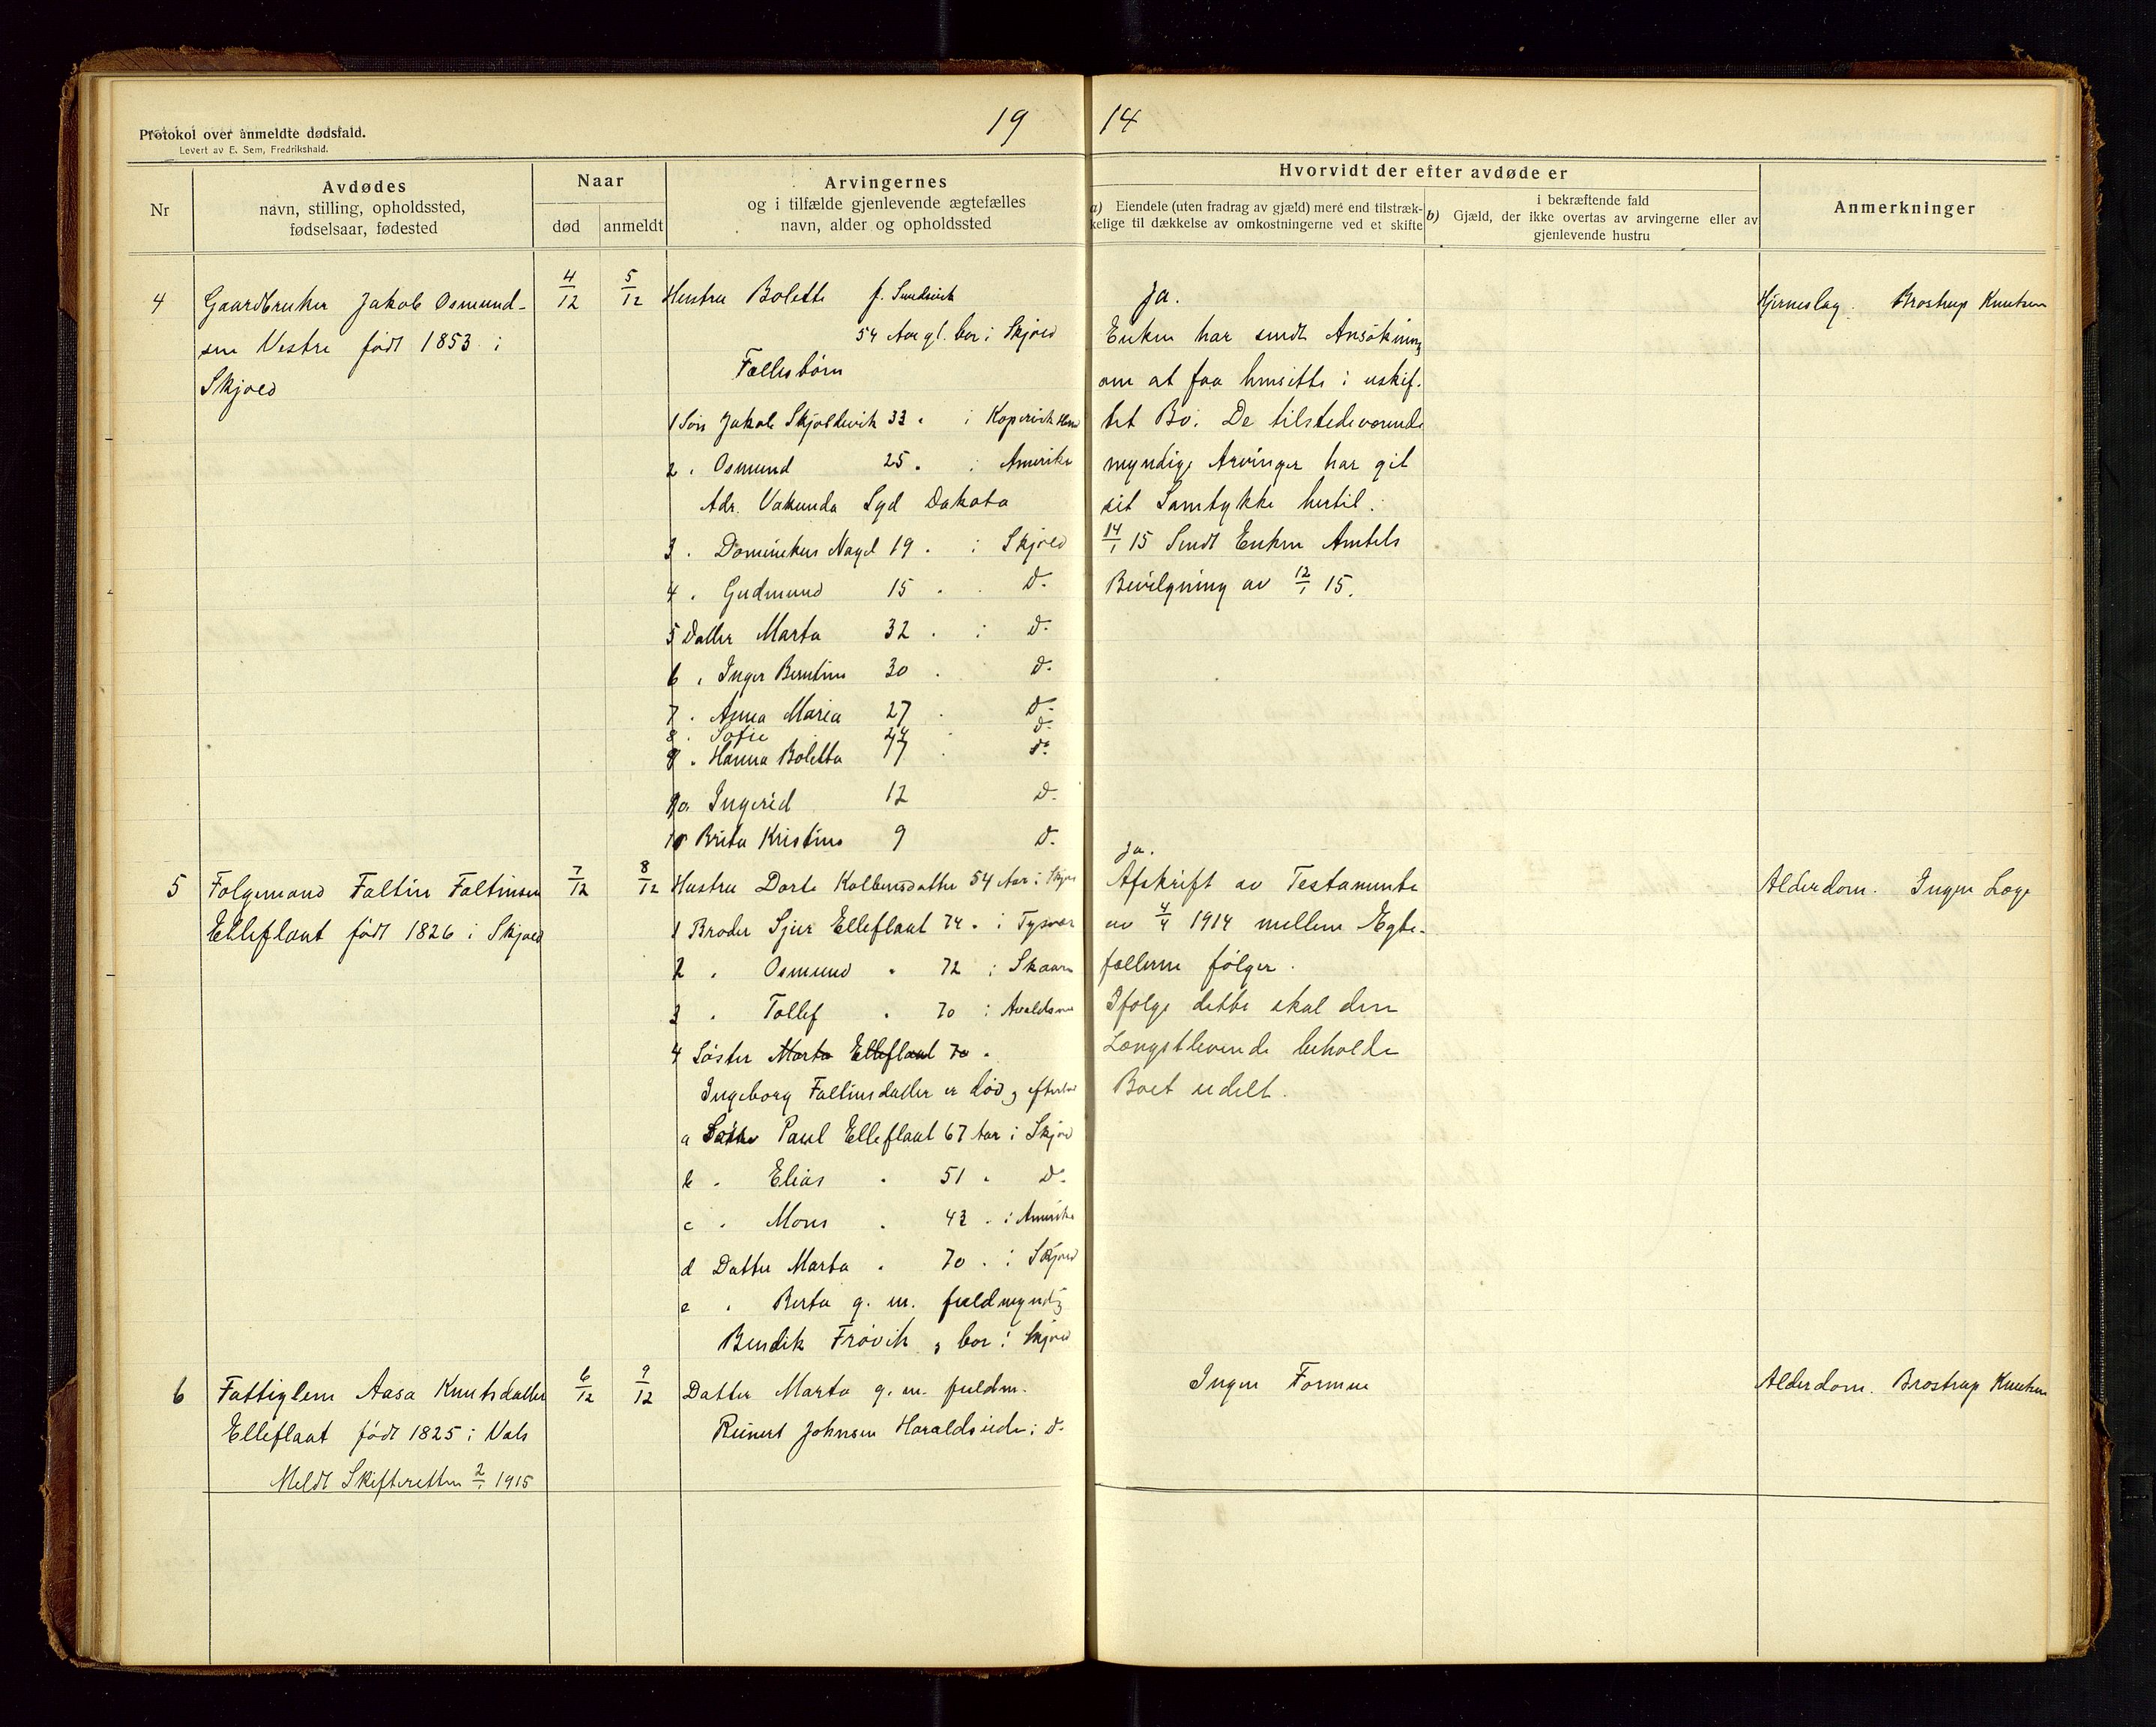 19 14
Protokol over anmeldte dødsfald.
Levert av E. Sem, Fredrikshald.
Nr
Avdødes
navn, stilling, opholdssted,
fødselsaar, fødested
Naar
død anmeldt
Arvingernes
og i tilfælde gjenlevende ægtefælles
navn, alder og opholdssted
Hvorvidt der efter avdøde er
a) Eiendele (uten fradrag av gjæld) mere end tilstræk-
kelige til dækkelse av omkostningerne ved et skifte
i bekræftende fald
b) Gjæld, der ikke overtas av arvingerne eller av
gjenlevende hustru
Anmerkninger
4 Gaardbruker Jakob Osmund-
sen Vestre født 1853 i
Skjold
4/12 5/12
Hustru Bolette f. Sundsvik
54 Aar gl. bor i Skjold
Fællesbørn
1 Søn Jakob Skjoldevik 33 " i Kopervik
2 " Osmund 25 " i Amerika
Adr. Vakunda Syd Dakota
3 " Dominikus Nagel 19 " i Skjold
4 " Gudmund 15 " " D.
5 Datter Marta 32 " i D.
6 " Inger Berntine 30 " D.
7 " Anna Maria 27 " D.
8 " Sofie 24 D.
9 " Hanna Boletta 17 " D.
10 Ingerid 12 D.
11 Brita Kristine 9 D.
Ja.
Enken har sendt Ansøkning
om at faa hensitte i uskif-
tet Bo. De tilstedeværende
myndige Arvinger har git
sit Samtykke hertil.
14/1 15 Sendt Enken Amtets
Bevilgning av 12/1 15.
Hjerneslag. Brostrup Knutsen
5 Folgemand Faltin Faltinsen
Elleflaat født 1826 i Skjold
7/12 8/12
Hustru Dorte Kolbensdatter 54 Aar i Skjold
1 Broder Sjur Elleflaat 74 " i Tysvær
2 " Osmund " 72 i Skaare
3 " Tollef " 70 i Avaldsnes
4 Søster Marta Elleflaat 70 "
Ingeborg Faltinsdatter er død og efterlod
a Paul Elleflaat 67 Aar i Skjold
b " Elias " 51 " D.
c " Mons " 43 " i Amerika
d Datter Marta " 70 " i Skjold
e " Berta g. m. fuldmyndig
Bendik Frøvik, bor i Skjold
Ja.
Afskrift av Testamente
av 4/4 1914 mellem Egte-
fællerne følger.
Ifølge dette skal den
Længstlevende beholde
Boet udelt.
Alderdom. Ingen Læge
6 Fattiglem Aasa Knutsdatter
Elleflaat født 1825 i Vats
Meldt Skifteretten 2/1 1915
6/12 9/12
Datter Marta g. m. fuldm.
Reinert Johnsen Haraldseide i D.
Ingen Formue
Alderdom. Brostrup Knutsen